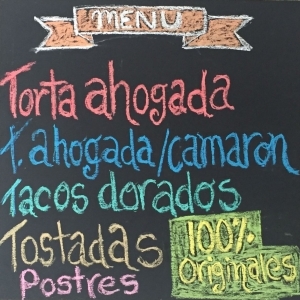 MENU
Torta ahogada
T. ahogada/camaron
Tacos dorados
Tostadas
Postres
100%
originales